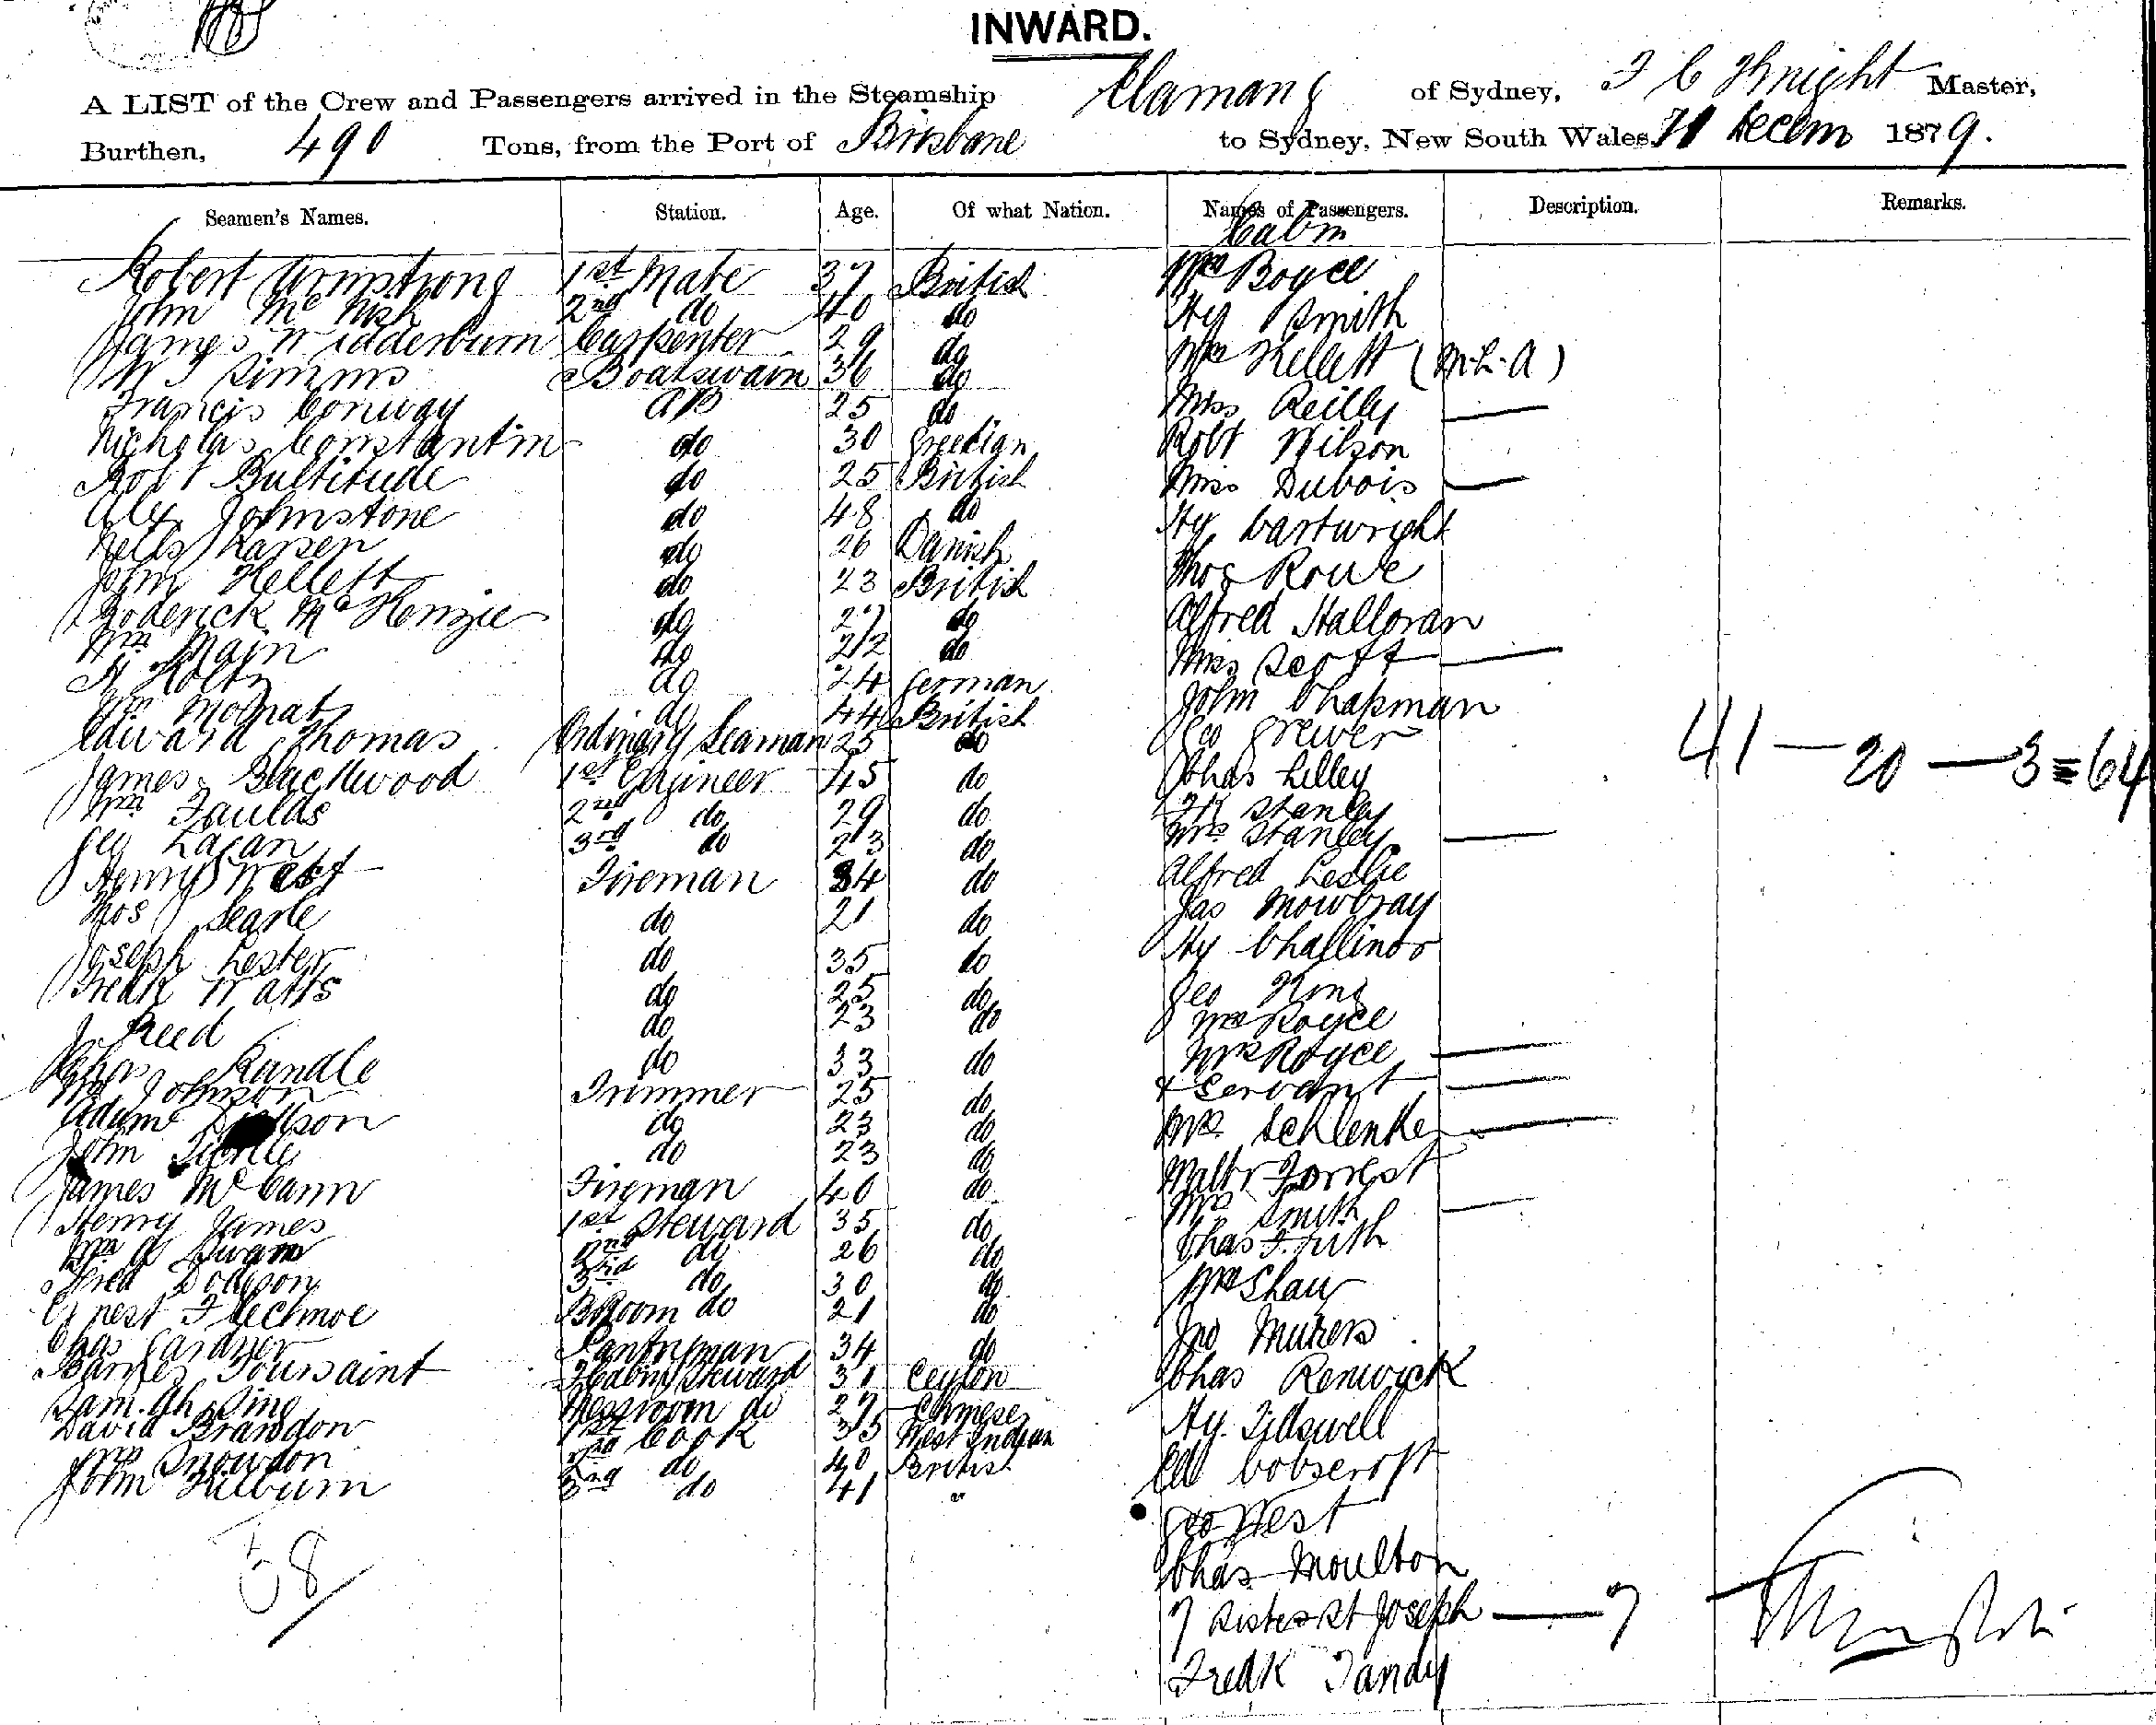 INWARD.
A LIST of the Crew and Passengers arrived in the Steamship Elamang of Sydney, F C Knight Master,
Burthen, 490 Tons, from the Port of Brisbane to Sydney, New South Wales, 31 Decem 1879.
Seamen's Names. Station. Age. Of what Nation. Names of Passengers. Description. Remarks.
Cabin
Robert Armstrong 1st Mate 37 British Wm Boyce
John McNish 2nd do 40 do Hy Smith
James Widderburn Carpenter 29 do Wm Kellett (M.L.A)
W J Simms Boatswain 36 do Miss Reilly
Francis Conway AB 25 do Robt Wilson
Nicholas Constantin do 30 Greecian Miss Dubois
Robt Bultitude do 25 British Hy Cartwright
Alex Johnstone do 48 do Thos Rowe
Nells Larsen do 26 Danish Alfred Halloran
John Kellett do 23 British Miss Scott
Roderick McKenzie do 27 do John Chapman
Wm Main do 22 do Geo Grewer
H Holtz do 24 German Chas Lilley
Wm Moffat do 44 British Stanley
Edward Thomas Ordinary Seaman 25 do Mrs Stanley
James Blackwood 1st Engineer 45 do Alfred Leslie
Wm Faulds 2nd do 29 do Jas Mowbray
Geo Lagan 3rd do 23 do Hy Challinor
Henry West Fireman 34 do Geo King
Thos Searle do 21 do Wm Royce
Joseph Lester do 35 do Mrs Royce
Fredk Watts do 25 do & Servant
J. Reed do 23 do Mrs Schlenker
Chas Randle do 33 do Waltr Forrest
Wm Johnson Trimmer 25 do Mrs Smith
Adam do 23 do Chas Frith
John do 23 do Wm Shaw
James McCann Fireman 40 do Jno
Henry James 1st Steward 35 do Chas Renwick
Wm A Swann 2nd do 26 do Hy. Tidswell
Fred Dodgson 3rd do 30 do Ed Cobscroft
Ernest Flechmoe B Room do 21 do Geo West
Chas Gardner Pantryman 34 do Chas Moulton
Barnes Toursaint F Cabin Steward 31 Ceylon 7 Sisters St Joseph 7
Sam Ah Sing Messroom do 27 Chinese Fredk Tandy
David Brandon 1st Cook 35 West Indian
Wm Snowdon 2nd do 40 British
John Filburn 3rd do 41 "
41 — 20 — 3 = 64
38